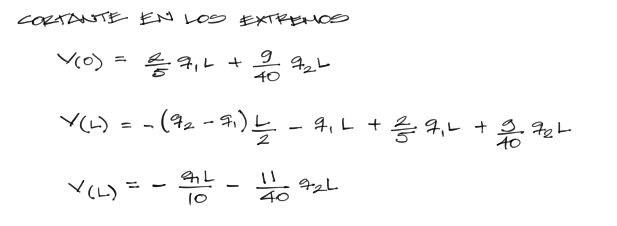 CORTANTE EN LOS EXTREMOS
V(0) = 2/5 q₁L + 9/40 q₂L
V(L) = -(q₂ - q₁) L/2 - q₁ L + 2/5 q₁L + 9/40 q₂L
V(L) = - q₁L/10 - 11/40 q₂L